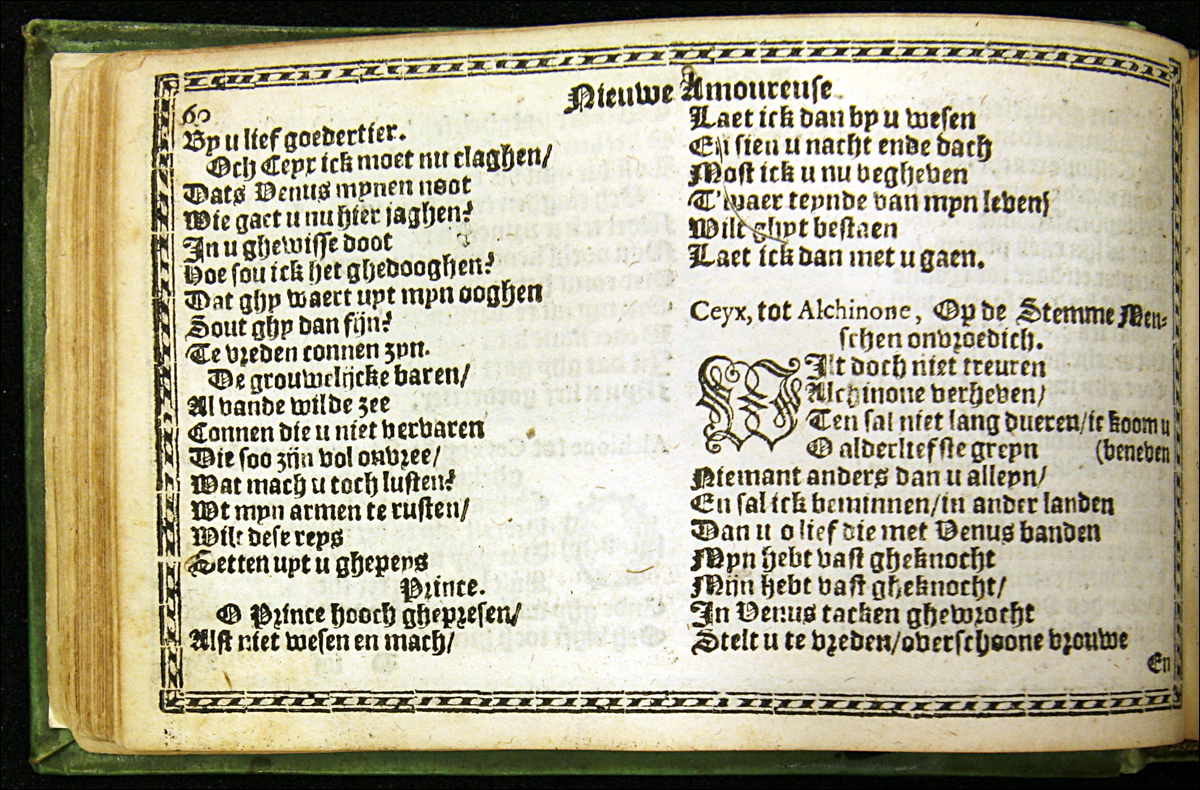 60
Nieuwe Amoureuse
By u lief goedertier.
Och Ceyx ick moet nu claghen/
Dats Venus mynen noot
Wie gaet u nu hier jaghen?
In u ghewisse doot
Hoe sou ick het ghedooghen?
Dat ghy waert uyt myn ooghen
Sout ghy dan sijn?
Te vreden connen zyn.
De grouwelijcke baren/
Al vande wilde zee
Connen die u niet vervaren
Die soo zijn vol onvree/
Wat mach u toch lusten?
Wt myn armen te rusten/
Wilt dese reys
Setten uyt u ghepeys
Prince.
O Prince hooch ghepresen/
Alst niet wesen en mach/
Laet ick dan by u wesen
En sien u nacht ende dach
Most ick u nu begheven
T'waer teynde van myn leven/
Wilt ghyt bestaen
Laet ick dan met u gaen.
Ceyx, tot Alchinone, Op de Stemme Men-
schen onvroedich.
WIlt doch niet treuren
Alchinone verheven/
Ten sal niet lang dueren/ic koom u
O alderliefste greyn (beneven
Niemant anders dan u alleyn/
En sal ick beminnen/in ander landen
Dan u o lief die met Venus banden
Myn hebt vast gheknocht
Mijn hebt vast gheknocht/
In Venus tacken ghewrocht
Stelt u te vreden/overschoone vrouwe
En